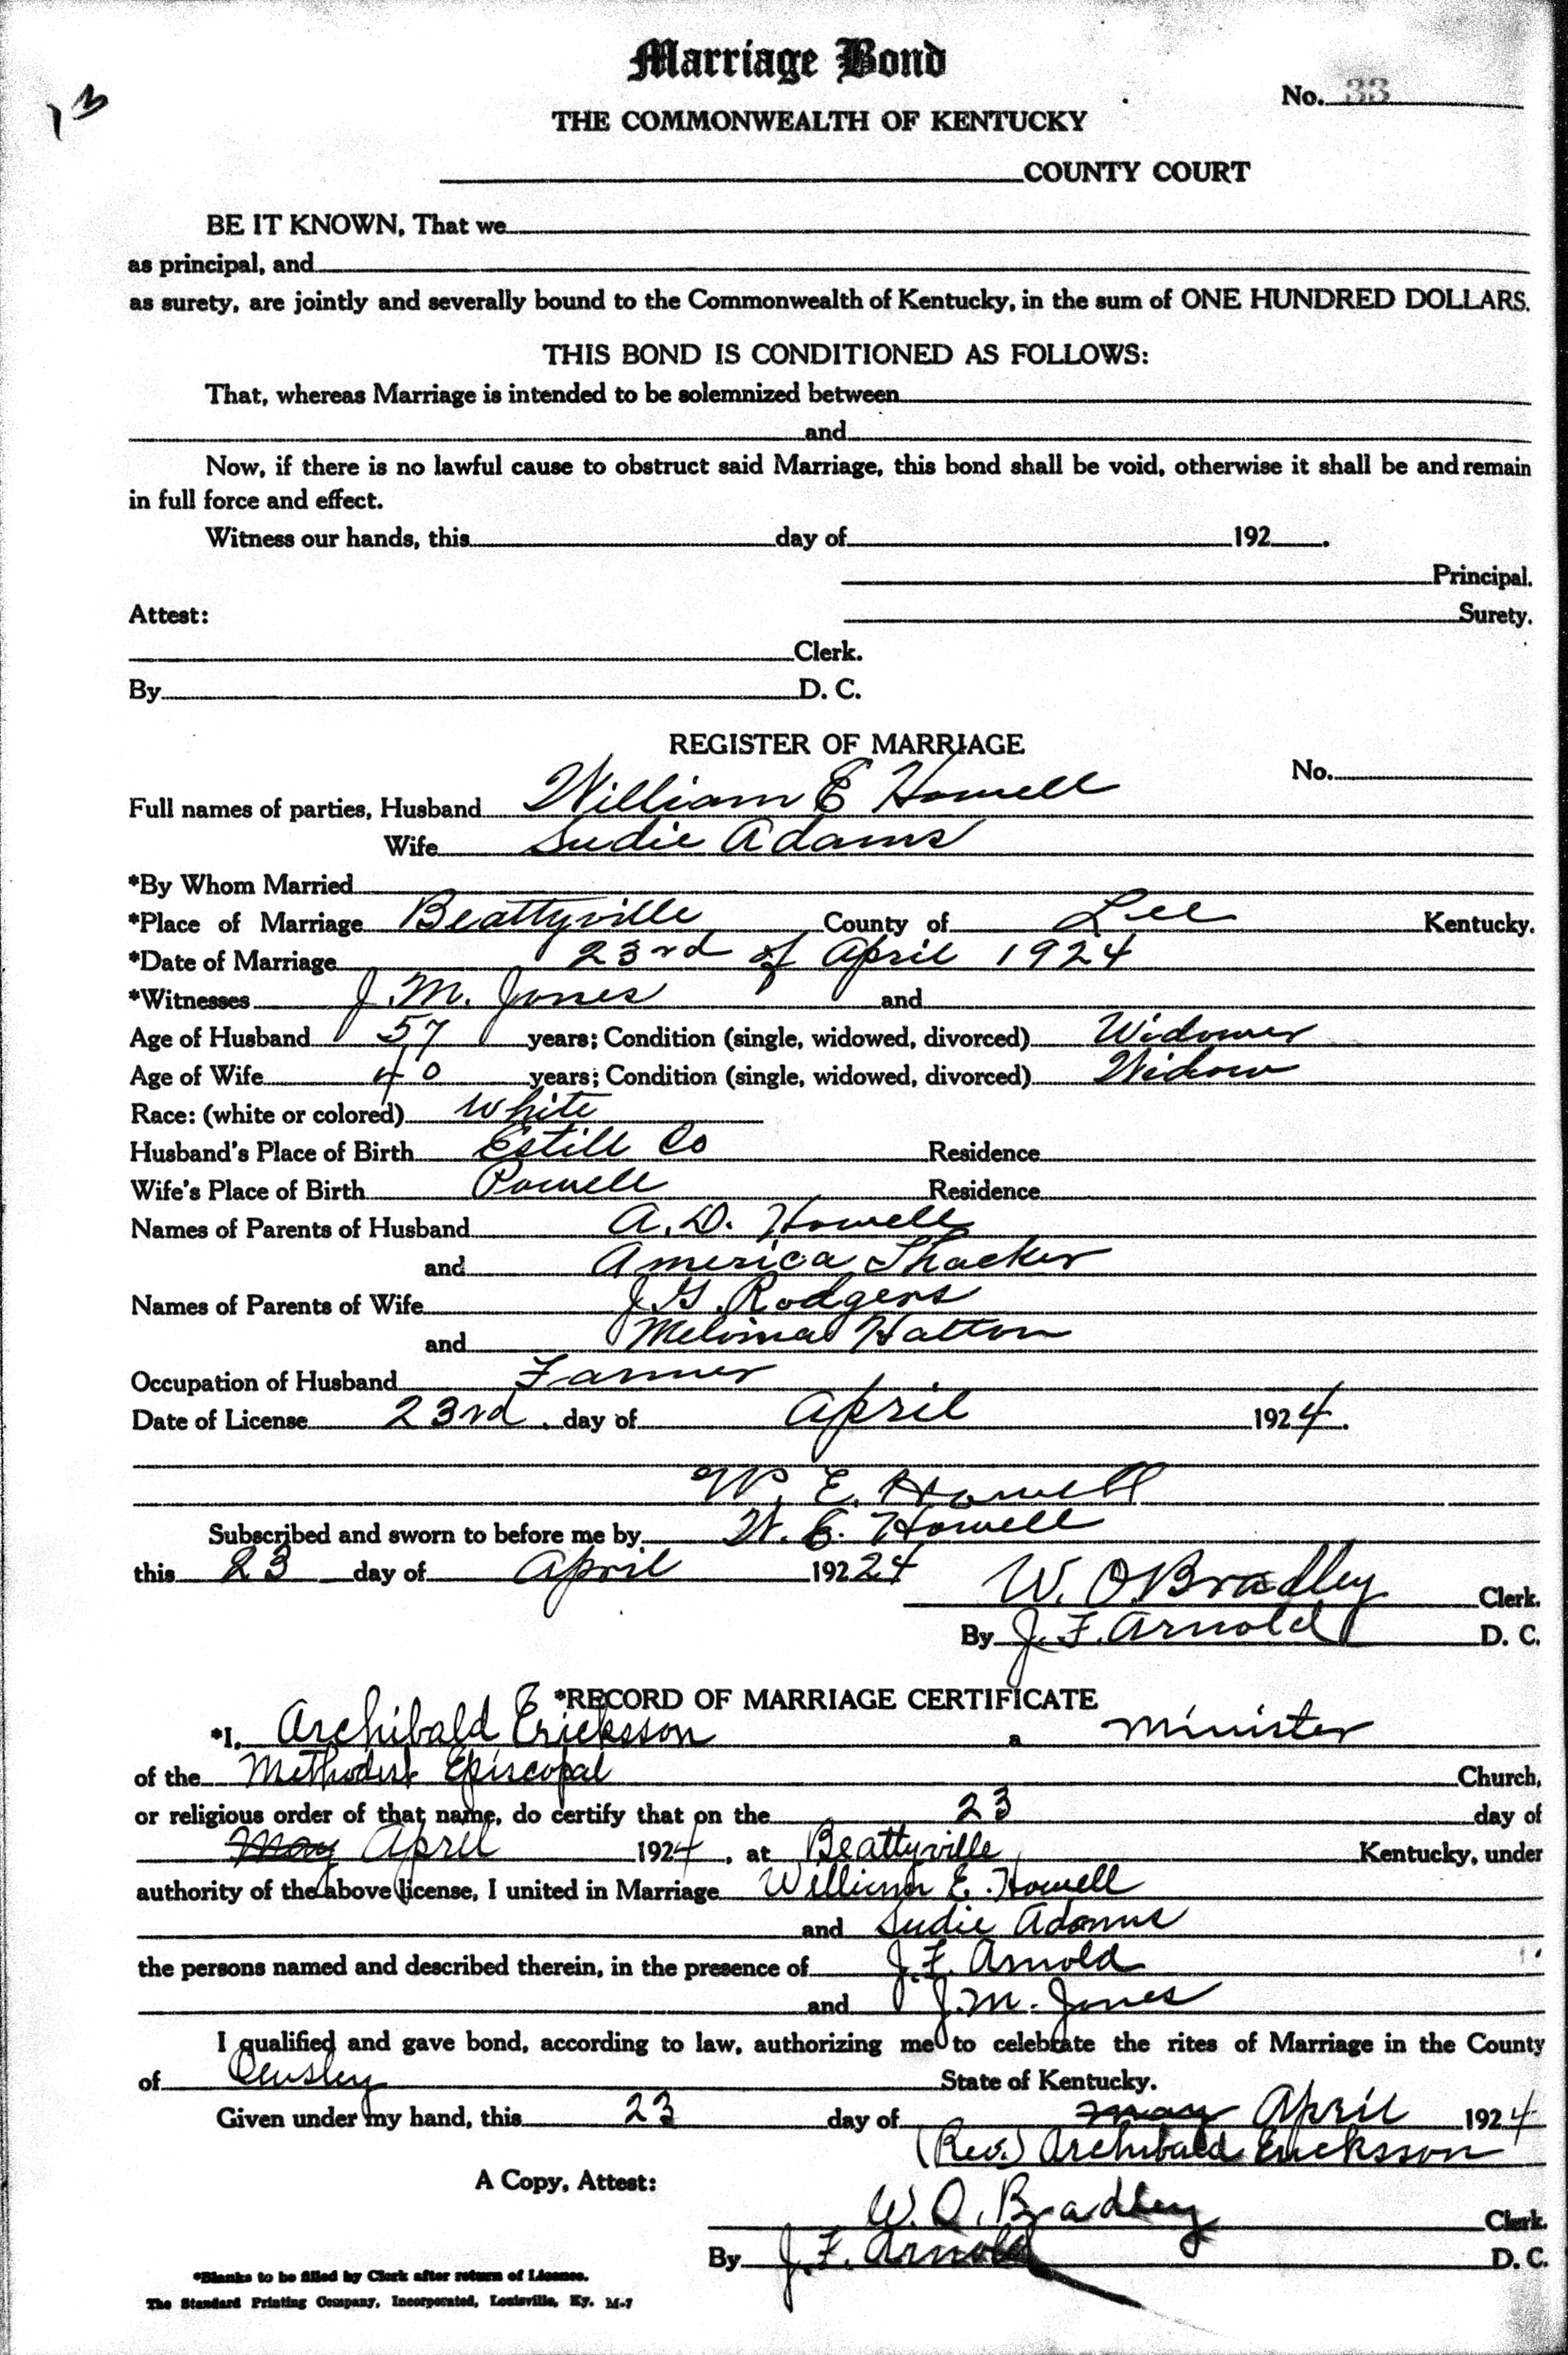 Marriage Bond
13
No. 33
THE COMMONWEALTH OF KENTUCKY
COUNTY COURT
BE IT KNOWN, That we
as principal, and
as surety, are jointly and severally bound to the Commonwealth of Kentucky, in the sum of ONE HUNDRED DOLLARS.
THIS BOND IS CONDITIONED AS FOLLOWS:
That, whereas Marriage is intended to be solemnized between
and
Now, if there is no lawful cause to obstruct said Marriage, this bond shall be void, otherwise it shall be and remain
in full force and effect.
Witness our hands, this day of 192 .
Principal.
Attest: Surety.
Clerk.
By D. C.
REGISTER OF MARRIAGE
No.
Full names of parties, Husband William E Howell
Wife Sudie Adams
*By Whom Married
*Place of Marriage Beattyville County of Lee Kentucky.
*Date of Marriage 23rd of April 1924
*Witnesses J. M. Jones and
Age of Husband 57 years; Condition (single, widowed, divorced) Widower
Age of Wife 40 years; Condition (single, widowed, divorced) Widow
Race: (white or colored) White
Husband's Place of Birth Estill Co Residence
Wife's Place of Birth Powell Residence
Names of Parents of Husband A. D. Howell
and America Thacker
Names of Parents of Wife J. G. Rodgers
and Melvina Hatton
Occupation of Husband Farmer
Date of License 23rd. day of April 1924.
W. E. Howell
Subscribed and sworn to before me by W. E. Howell
this 23 day of April 19224
W. O. Bradley Clerk.
By J. F. Arnold D. C.
*RECORD OF MARRIAGE CERTIFICATE
*I, Archibald Ericksson a minister
of the Methodist Episcopal Church,
or religious order of that name, do certify that on the 23 day of
May April 1924, at Beattyville Kentucky, under
authority of the above license, I united in Marriage William E. Howell
and Sudie Adams
the persons named and described therein, in the presence of J. F. Arnold
and J. M. Jones
I qualified and gave bond, according to law, authorizing me to celebrate the rites of Marriage in the County
of State of Kentucky.
Given under my hand, this 23 day of May April 1924
(Rev.) Archibald Ericksson
A Copy, Attest:
W. O. Bradley Clerk.
By J. F. Arnold D. C.
*Blanks to be filled by Clerk after return of License.
The Standard Printing Company, Incorporated, Louisville, Ky. M-7